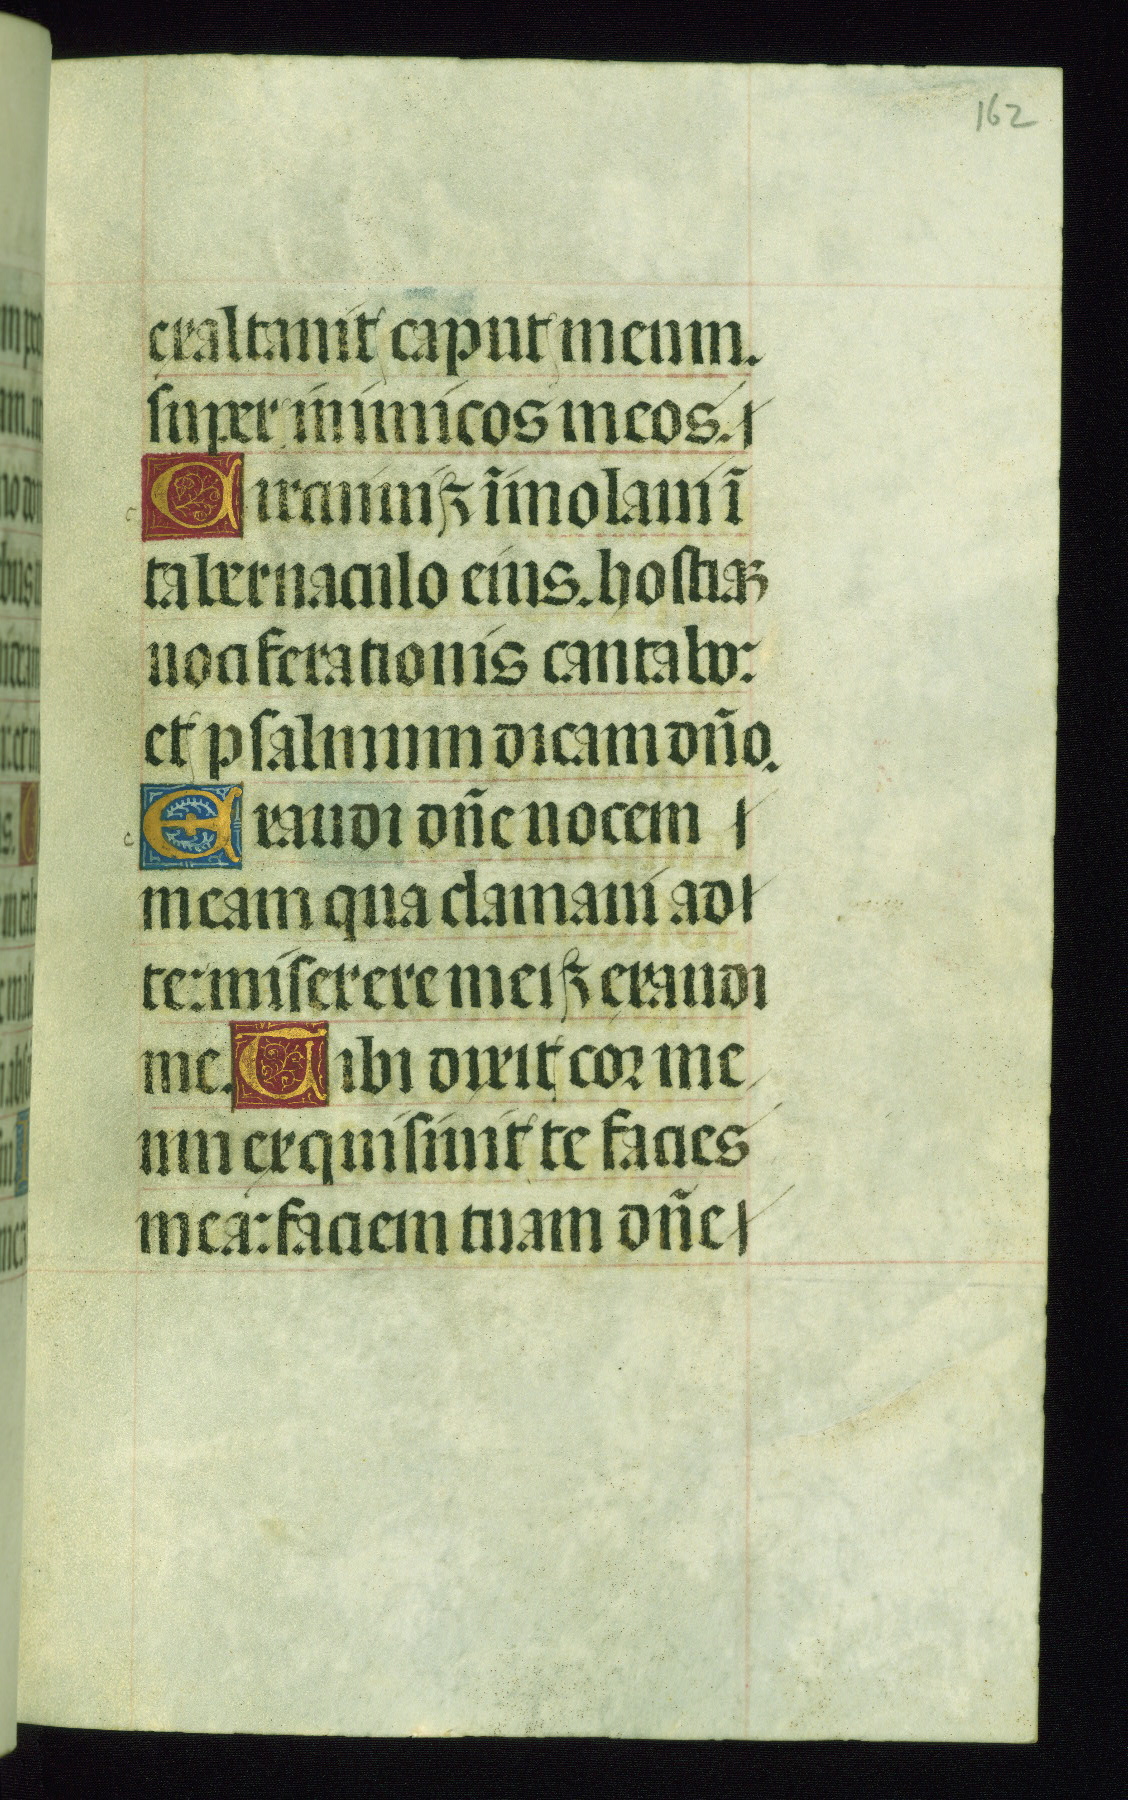 162
exaltauit caput meum.
super inimicos meos.
Circuiui ⁊ ĩmolaui ĩ
tabernaculo eius. hostiaꝫ
uociferationis cantabo:
et psalmum dicam dño.
Exaudi dñe uocem
meam qua clamaui ad
te: miserere mei ⁊ exaudi
me. Tibi dixit cor me
um exquisiuit te facies
mea: faciem tuam dñe